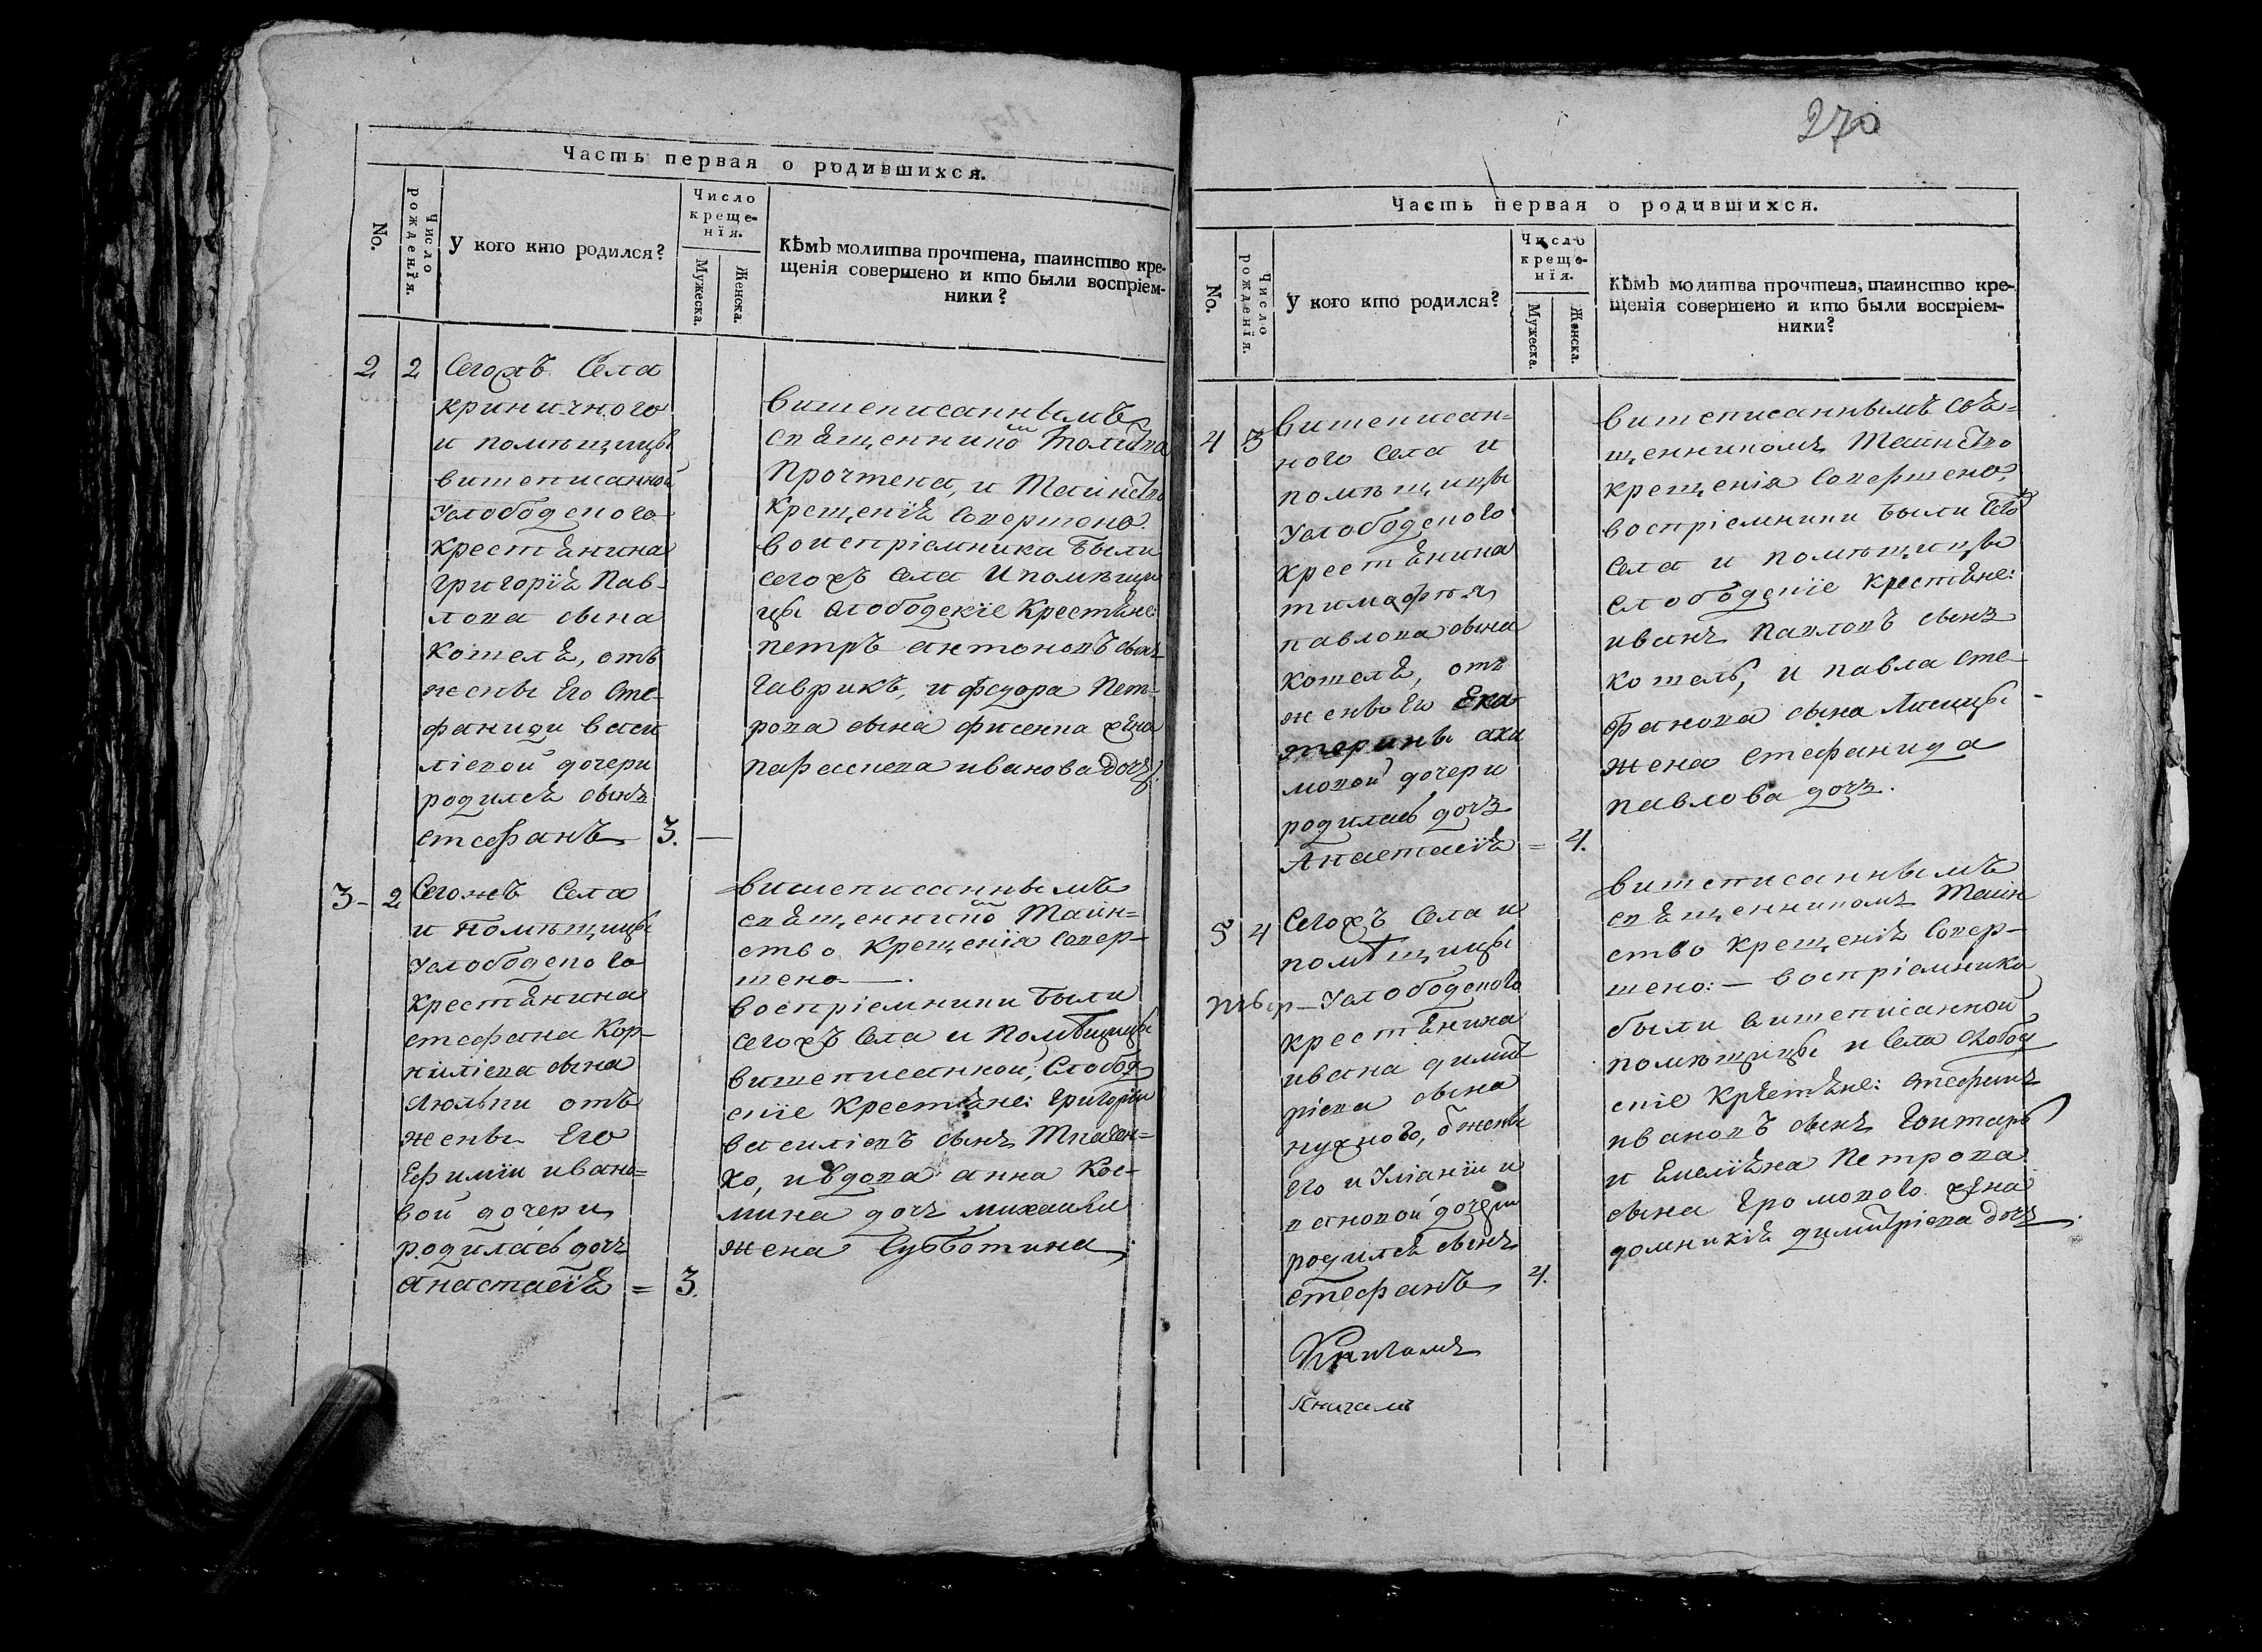 Часть первая о родившихся.
No.
Число рожденїя.
У кого кто родился?
Число
креще-
нїя.
Мужеска.
Женска.
Кѣмъ молитва прочтена, таинство кре-
щенія совершено и кто были воспріем-
ники?
2
2
Сегожъ Села
криничного
и помѣщицы
вишеписанной
Услободского
крестянина
григорїя Пав-
лова сына
Кошеля, отъ
жены Его Сте-
фаниди васи
лїевой дочери
родился сынъ
стефанъ
3.
—
вишеписаннымъ
священнико молитва
Прочтена, и Таинство
Крещенїя Совершено.
воиспріемники были
сегожъ села И помѣщи
цы слободскїе Крестяне:
петръ антоновъ сынъ
Гаврикъ, и федора Пет-
рова сына фисенка жена
параскева иванова дочъ.
3-
2
Сегожъ Села
и помѣщицы
услободского
Крестянина
стефана Кор-
нилїева сына
Люльки отъ
жены Его
Ефимїи ивано=
вой дочери
родилась дочъ
анастасїя
=
3.
вишеписаннымъ
священнико Таин=
ство Крещенїя Совер-
шено —.
воспріемники были
сегожъ Села и Помѣщицы
вишеписанной, Слобод
скїе Крестяне: григорїи
василїевъ сынъ Ткачен=
ко, и вдова анна Кос-
мина дочъ михаила
жена Субботина.
270
Часть первая о родившихся.
No.
Число рожденїя.
У кого кто родился?
Число
креще-
нїя.
Мужеска.
Женска.
Кѣмъ молитва прочтена, таинство кре-
щенія совершено и кто были воспріем-
ники?
4
3
вишеписан=
ного Села и
помѣщицы
Услободского
крестянина
тимофѣя
павлова сына
кошеля, отъ
жены Его Ека
терины аки
мовой дочери
родилась дочъ
Анастасїя
=
4.
вишеписаннымъ свя=
щенникомъ Таинство
крещенїя Совершено,
воспріемники были сегожъ
села и помѣщицы
слободскїе крестяне:
иванъ павловъ сынъ
кошель, и павла сте-
фанова сына Лисицы
жена стефанида
павлова дочъ.
5
4
Сегожъ Села и
помѣщицы
Услободского
крестянина
ивана димит
рїева сына
нужного, ѿ жены
его и Улїанїи и
вановой дочери
родился сынъ
стефанъ
4.
вишеписаннымъ
священникомъ Таин
ство крещенїя Совер-
шено: — воспріемники
были вишеписанной
помѣщицы и села слобод
скїе Крестяне: стефанъ
ивановъ сынъ Гонтарь
и Емелїяна Петрова
сына Громового жена
домникїя димитрїева дочъ.
Книгамъ
книгамъ